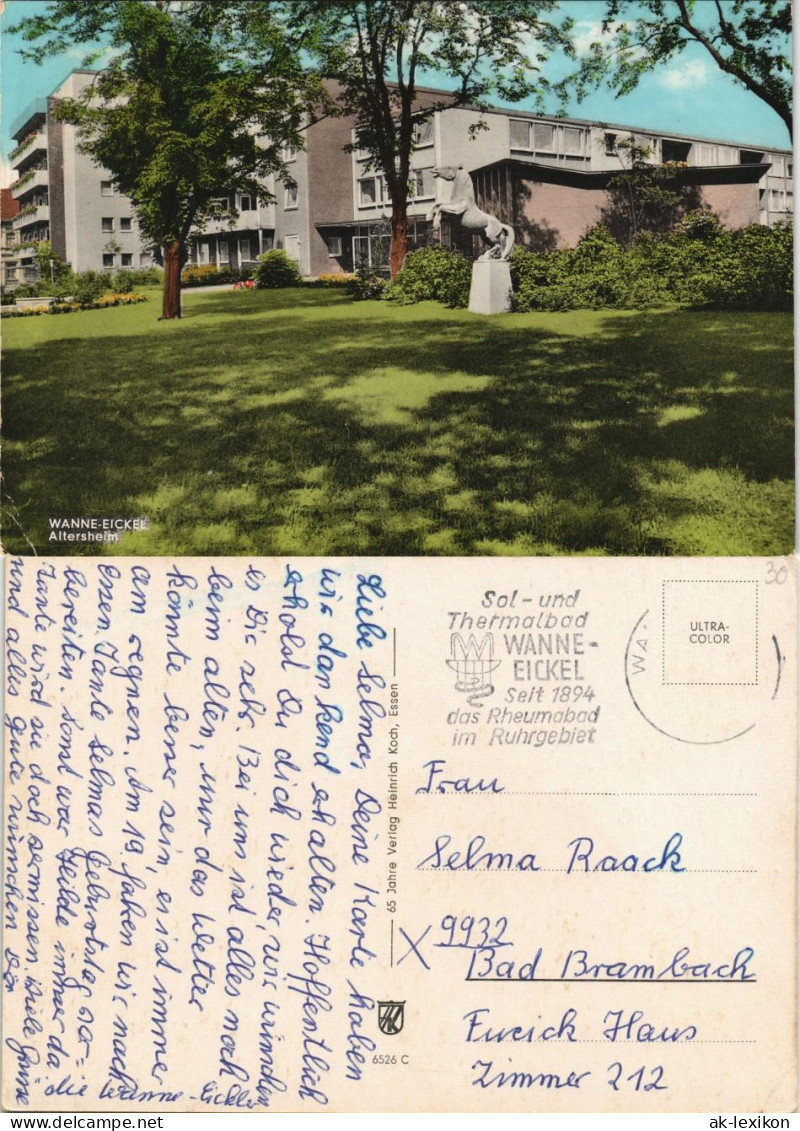 WANNE-EICKEL
Altersheim
Liebe Selma, Deine Karte haben
wir dankend erhalten. Hoffentlich
erholst Du dich wieder, wir wünschen
es Dir sehr. Bei uns ist alles noch
beim alten, nur das Wetter
könnte besser sein, es ist immer
am regnen. Am 19. fahren wir nach
Essen. Tante Selmas Geburtstag vor=
bereiten. Sonst war Heilde immer da
Tante wird sie doch vermissen. Viele Grüsse
und alles gute wünschen Dir
die Wanne-Eickler
65 Jahre Verlag Heinrich Koch, Essen
HK
6526 C
Sol- und
Thermalbad
WANNE-
EICKEL
Seit 1894
das Rheumabad
im Ruhrgebiet
WA
ULTRA-
COLOR
30
Frau
Selma Raack
X 9932
Bad Brambach
Fucick Haus
Zimmer 212
ak-lexikon.com